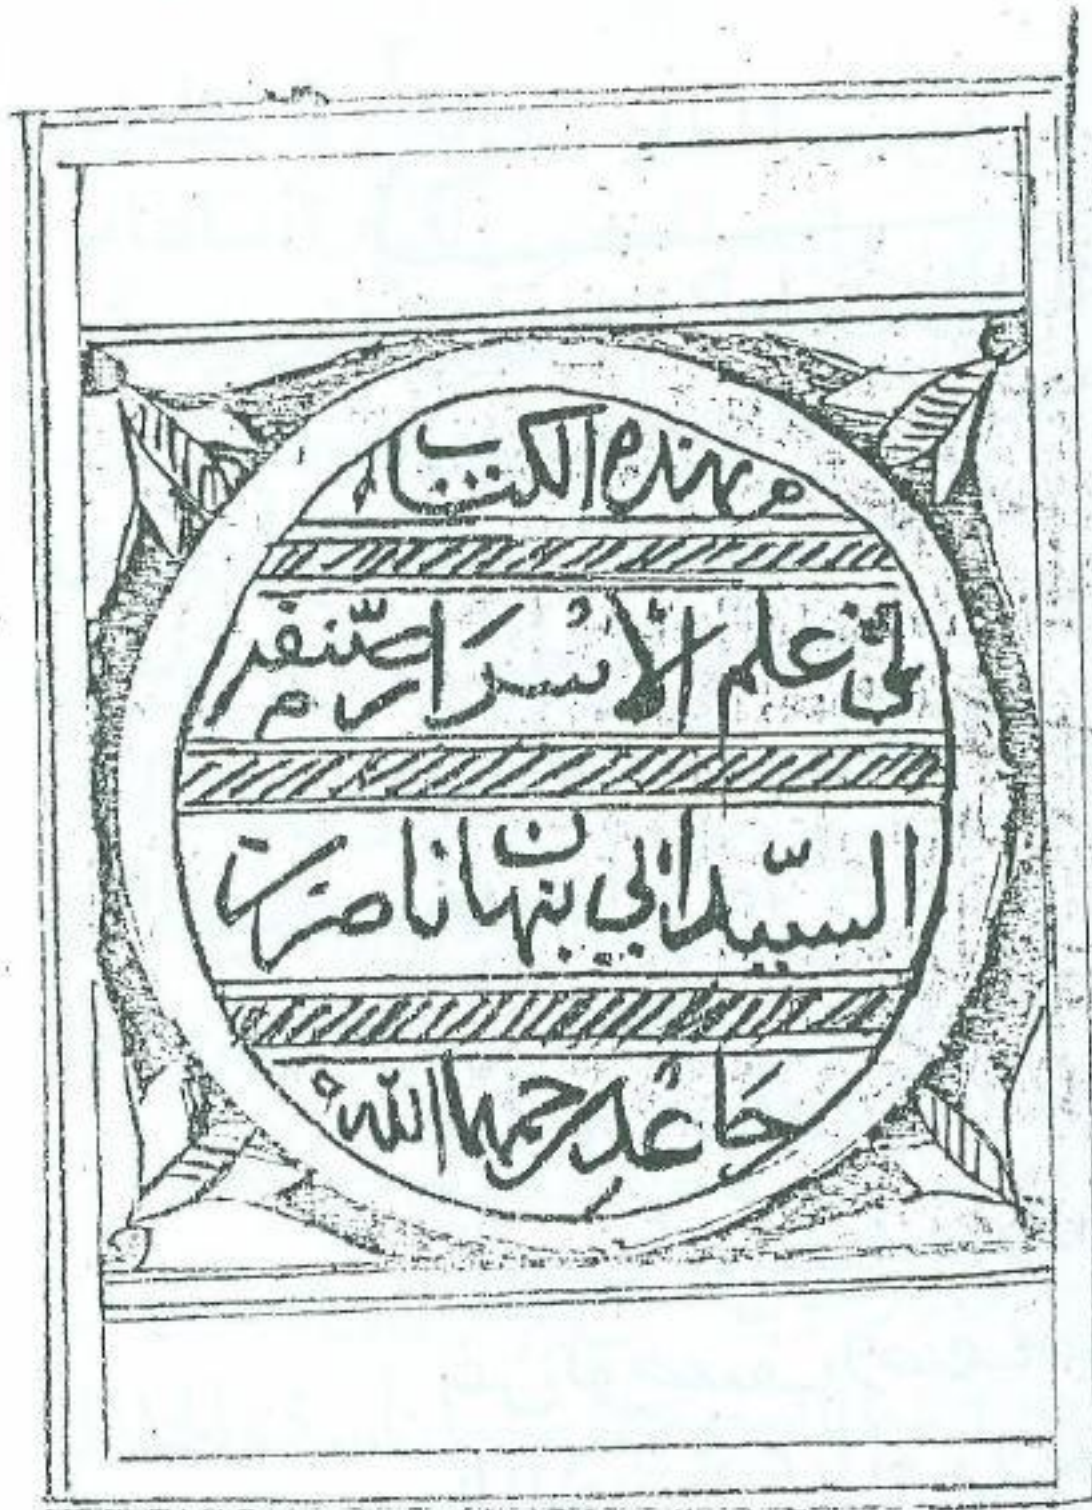 الكتاب
في علم الأسرار
السيّد ابي نبهان ناصر بن
جاعد رحمهما الله